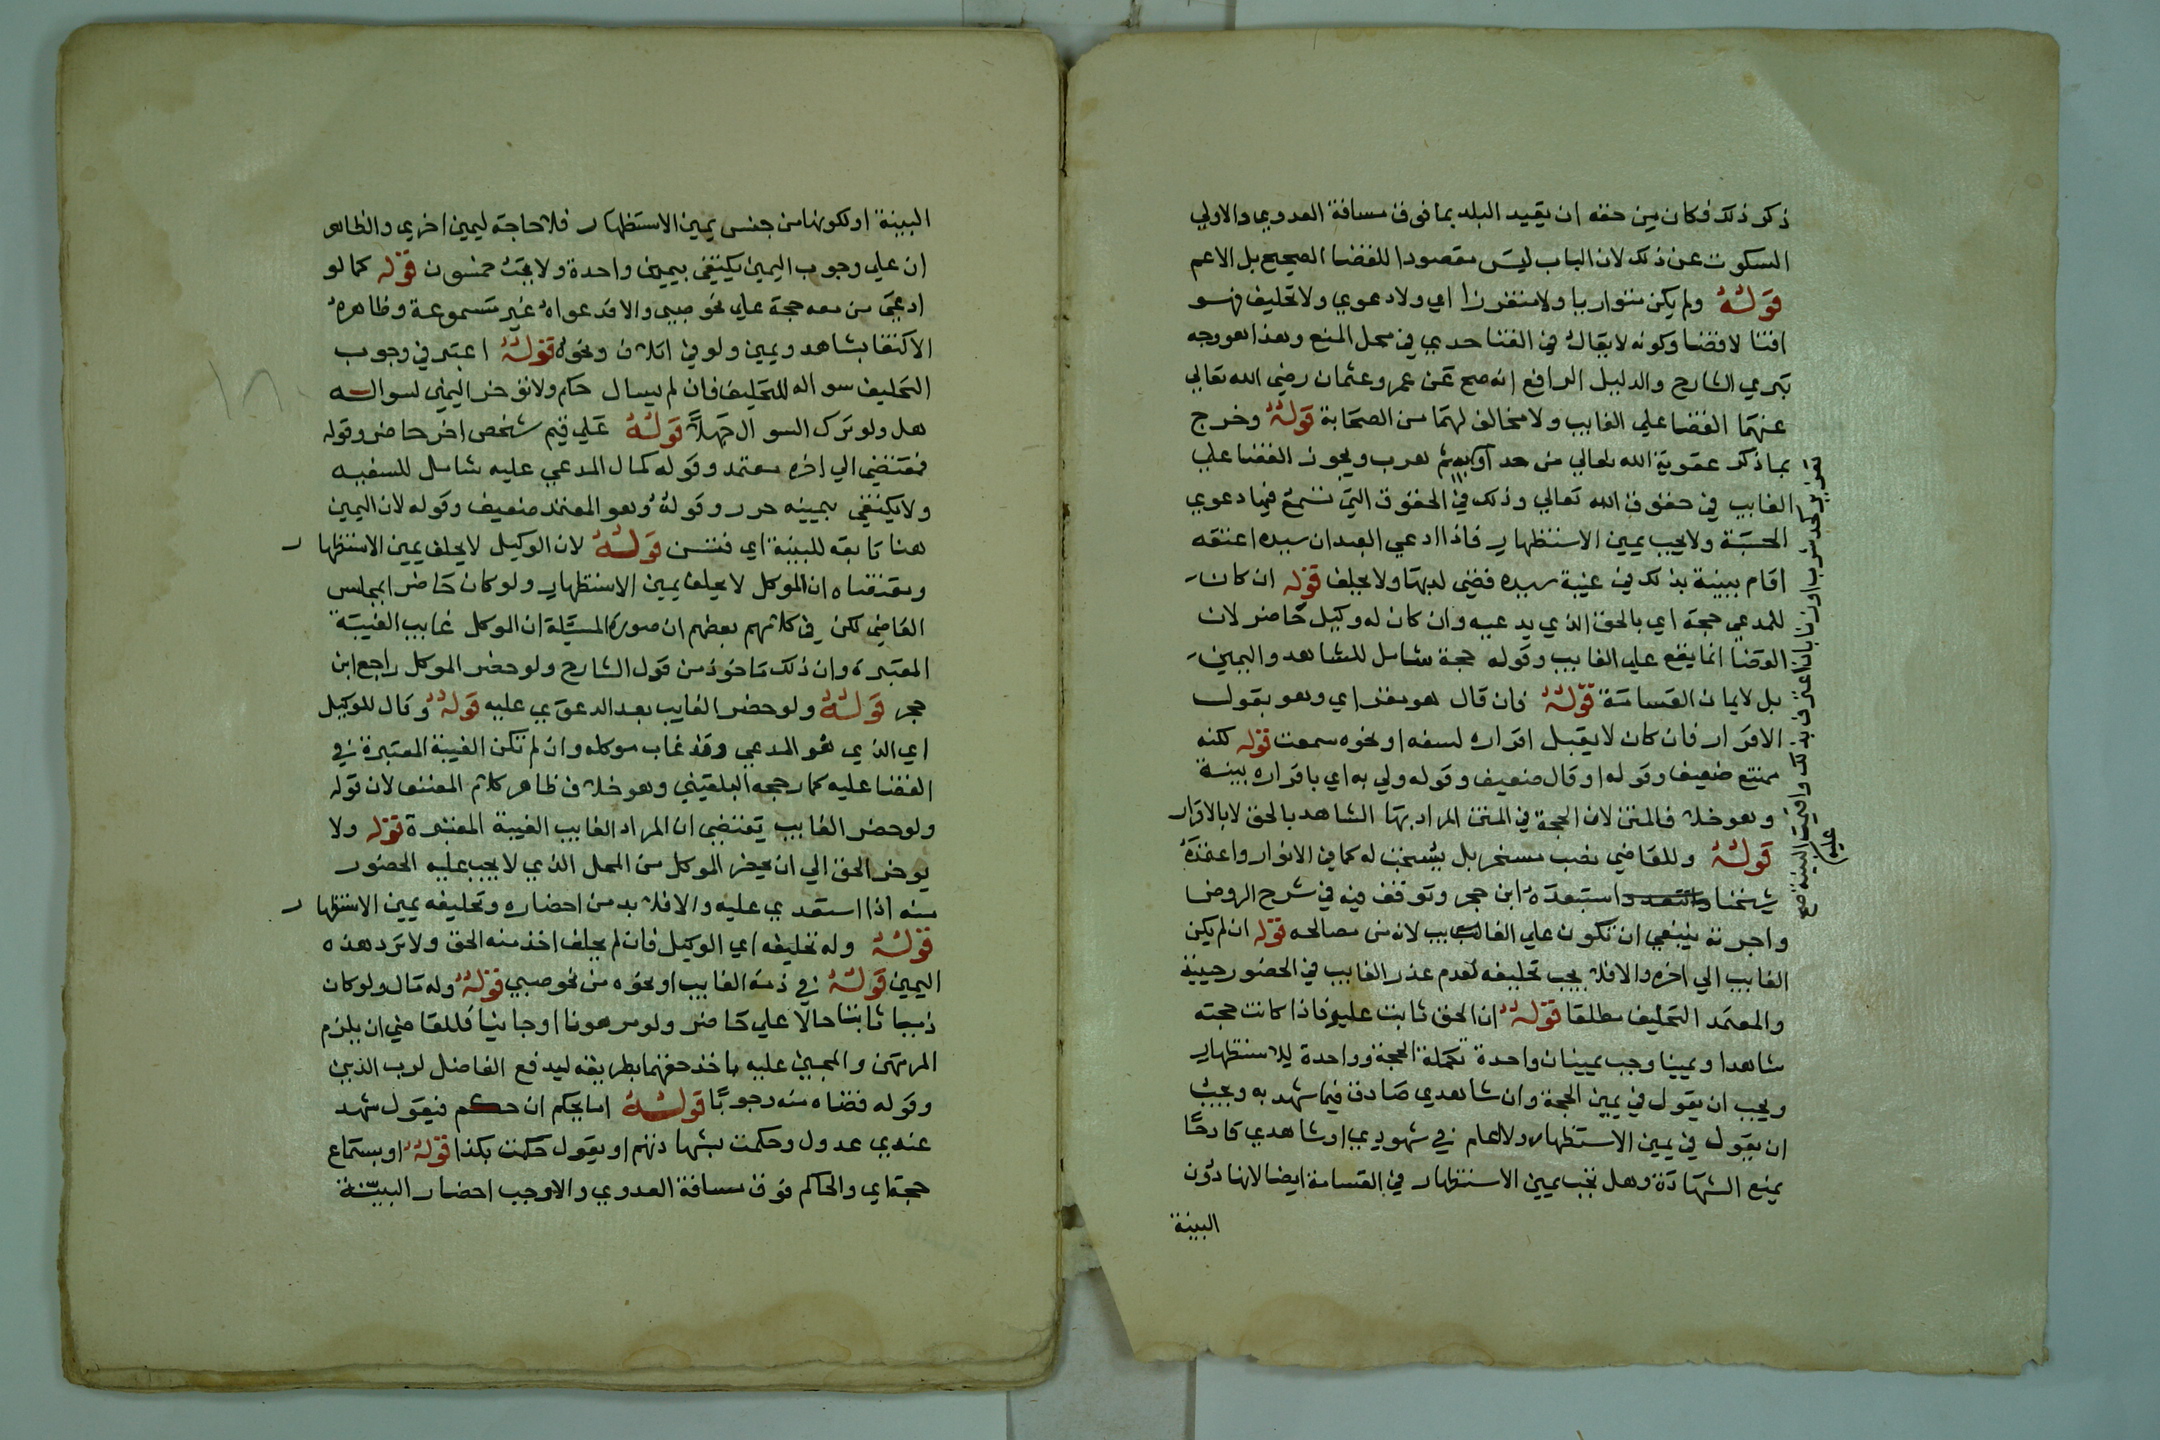 ذكر ذلك فكان من حقه ان يقيد البلد بما فوق مسافة العدوي والاولي
السكوت عن ذلك لان الباب ليس مقصودا للقضا الصحيح بل الاعم
قوله ولم يكن متواريا ولا متعززا اي ولا دعوي ولا تحليف فهو
افتا لا قضا وكونه لا يقال في الفتا حدي في محل المنع وهذا هو وجه
تبري الشارح والدليل الرافع انه صح عن عمر وعثمان رضي الله تعالي
عنهما القضا علي الغايب ولا مخالف لهما من الصحابة قوله وخرج
بما ذكر عقوبة الله تعالي من حد او هرب ويجوز القضا علي
الغايب في حقوق الله تعالي وذلك في الحقوق التي تسمع فيها دعوي
الحسبة ولا يجب يمين الاستظهار فاذا ادعي العبد ان سيده اعتقه
اقام ببينة بذلك في غيبة سيده قضي له بها ولا يحلف قوله ان كان
للمدعي حجة اي بالحق الذي يدعيه وان كان له وكيل حاضر لان
القضا انما يقع علي الغايب وقوله حجة شامل للشاهد واليمين
بل لايمان القسامة قوله فان قال هو مقر اي وهو بقول
الاقرار فان كان لا يقبل اقراره لسفه او نحوه سمعت قوله لكنه
ممتنع ضعيف وقوله او قال ضعيف وقوله ولي به اي باقراره بينة
وهو خلاف المتن لان الحجة في المتن المراد بها الشاهد بالحق لا بالاقرار
قوله وللقاضي نصب مسخر بل يستحب له كما في الانوار واعتمده
شيخنا واستبعده ابن حجر وتوقف فيه في شرح الروض
واجرته ينبغي ان تكون علي الغايب لانه من مصالحه قوله ان لم يكن
الغايب الي اخره والا فلا يجب تحليفه لعدم عذر الغايب في الحضور حينئذ
والمعتمد التحليف مطلقا قوله ان الحق ثابت عليه فاذا كانت حجته
شاهدا ويمينا وجب يمينان واحدة تكملة الحجة وواحدة للاستظهار
ويجب ان يقول في يمين الحجة وان شاهدي صادق فيما شهد به ويجب
ان يقول في يمين الاستظهار ولا اعلم في شهودي او شاهدي قادحا
يمنع الشهادة وهل تجب يمين الاستظهار في القسامة ايضا لانها دون
البينة
عليه
البينة او لكونها من جنس يمين الاستظهار فلا حاجة ليمين اخري والظاهر
ان علي وجوب اليمين يكتفي بيمين واحدة ولا يجب خمسون قوله كما لو
ادعي من معه حجة علي نحو صبي والا فدعواه غير مسموعة وظاهره
الاكتفا بشاهد ويمين ولو في اتلاف ونحوه قوله اعتبر في وجوب
التحليف سواله للتحليف فان لم يسال حكم ولا نوخر اليمين لسواله
هل ولو ترك السوال جهلا قوله علي قيم شخص اخر حاضر وقوله
فمقتضي الي اخره معتمد وقوله كمال المدعي عليه شامل للسفيه
ولا يكتفي بيمينه حرر وقوله وهو المعتمد ضعيف وقوله لان اليمين
هنا تابعة للبينة اي فتسن قوله لان الوكيل لا يحلف يمين الاستظهار
ومقتضاه ان الموكل لا يحلف يمين الاستظهار ولو كان حاضرا بمجلس
القاضي لكن في كلام بعضهم ان صورة المسئلة ان الموكل غايب الغيبة
المعتبرة وان ذلك ماخوذ من قول الشارح ولو حضر الموكل راجع ابن
حجر قوله ولو حضر الغايب بعد الدعوي عليه قوله وقال للوكيل
اي الذي هو المدعي وقد غاب موكله وان لم تكن الغيبة المعتبرة في
القضا عليه كما رجحه البلقيني وهو خلاف ظاهر كلام المصنف لان قوله
ولو حضر الغايب يقتضي ان المراد الغايب الغيبة المعتبرة قوله ولا
يوخر الحق الي ان يحضر الموكل من المحل الذي لا يجب عليه الحضور
منه اذا استعدي عليه والا فلا بد من احضاره وتحليفه يمين الاستظهار
قوله وله تحليفه اي الوكيل فان لم يحلف اخذ منه الحق ولا ترد هذه
اليمين قوله في ذمة الغايب او نحوه من نحو صبي قوله وله مال ولو كان
دينا ثابتا حالا علي حاضر ولو مرهونا او جانيا فللقاضي ان يلزم
المرتهن والمجني عليه باخذ حقهما بطريقه ليدفع الفاضل لرب الدين
وقوله قضاه منه وجوبا قوله اما بحكم ان حكم فيقول شهد
عندي عدول وحكمت بشهادتهم او يقول حكمت بكذا قوله او بسماع
حجة اي والحاكم فوق مسافة العدوي والاوجب احضار البينة